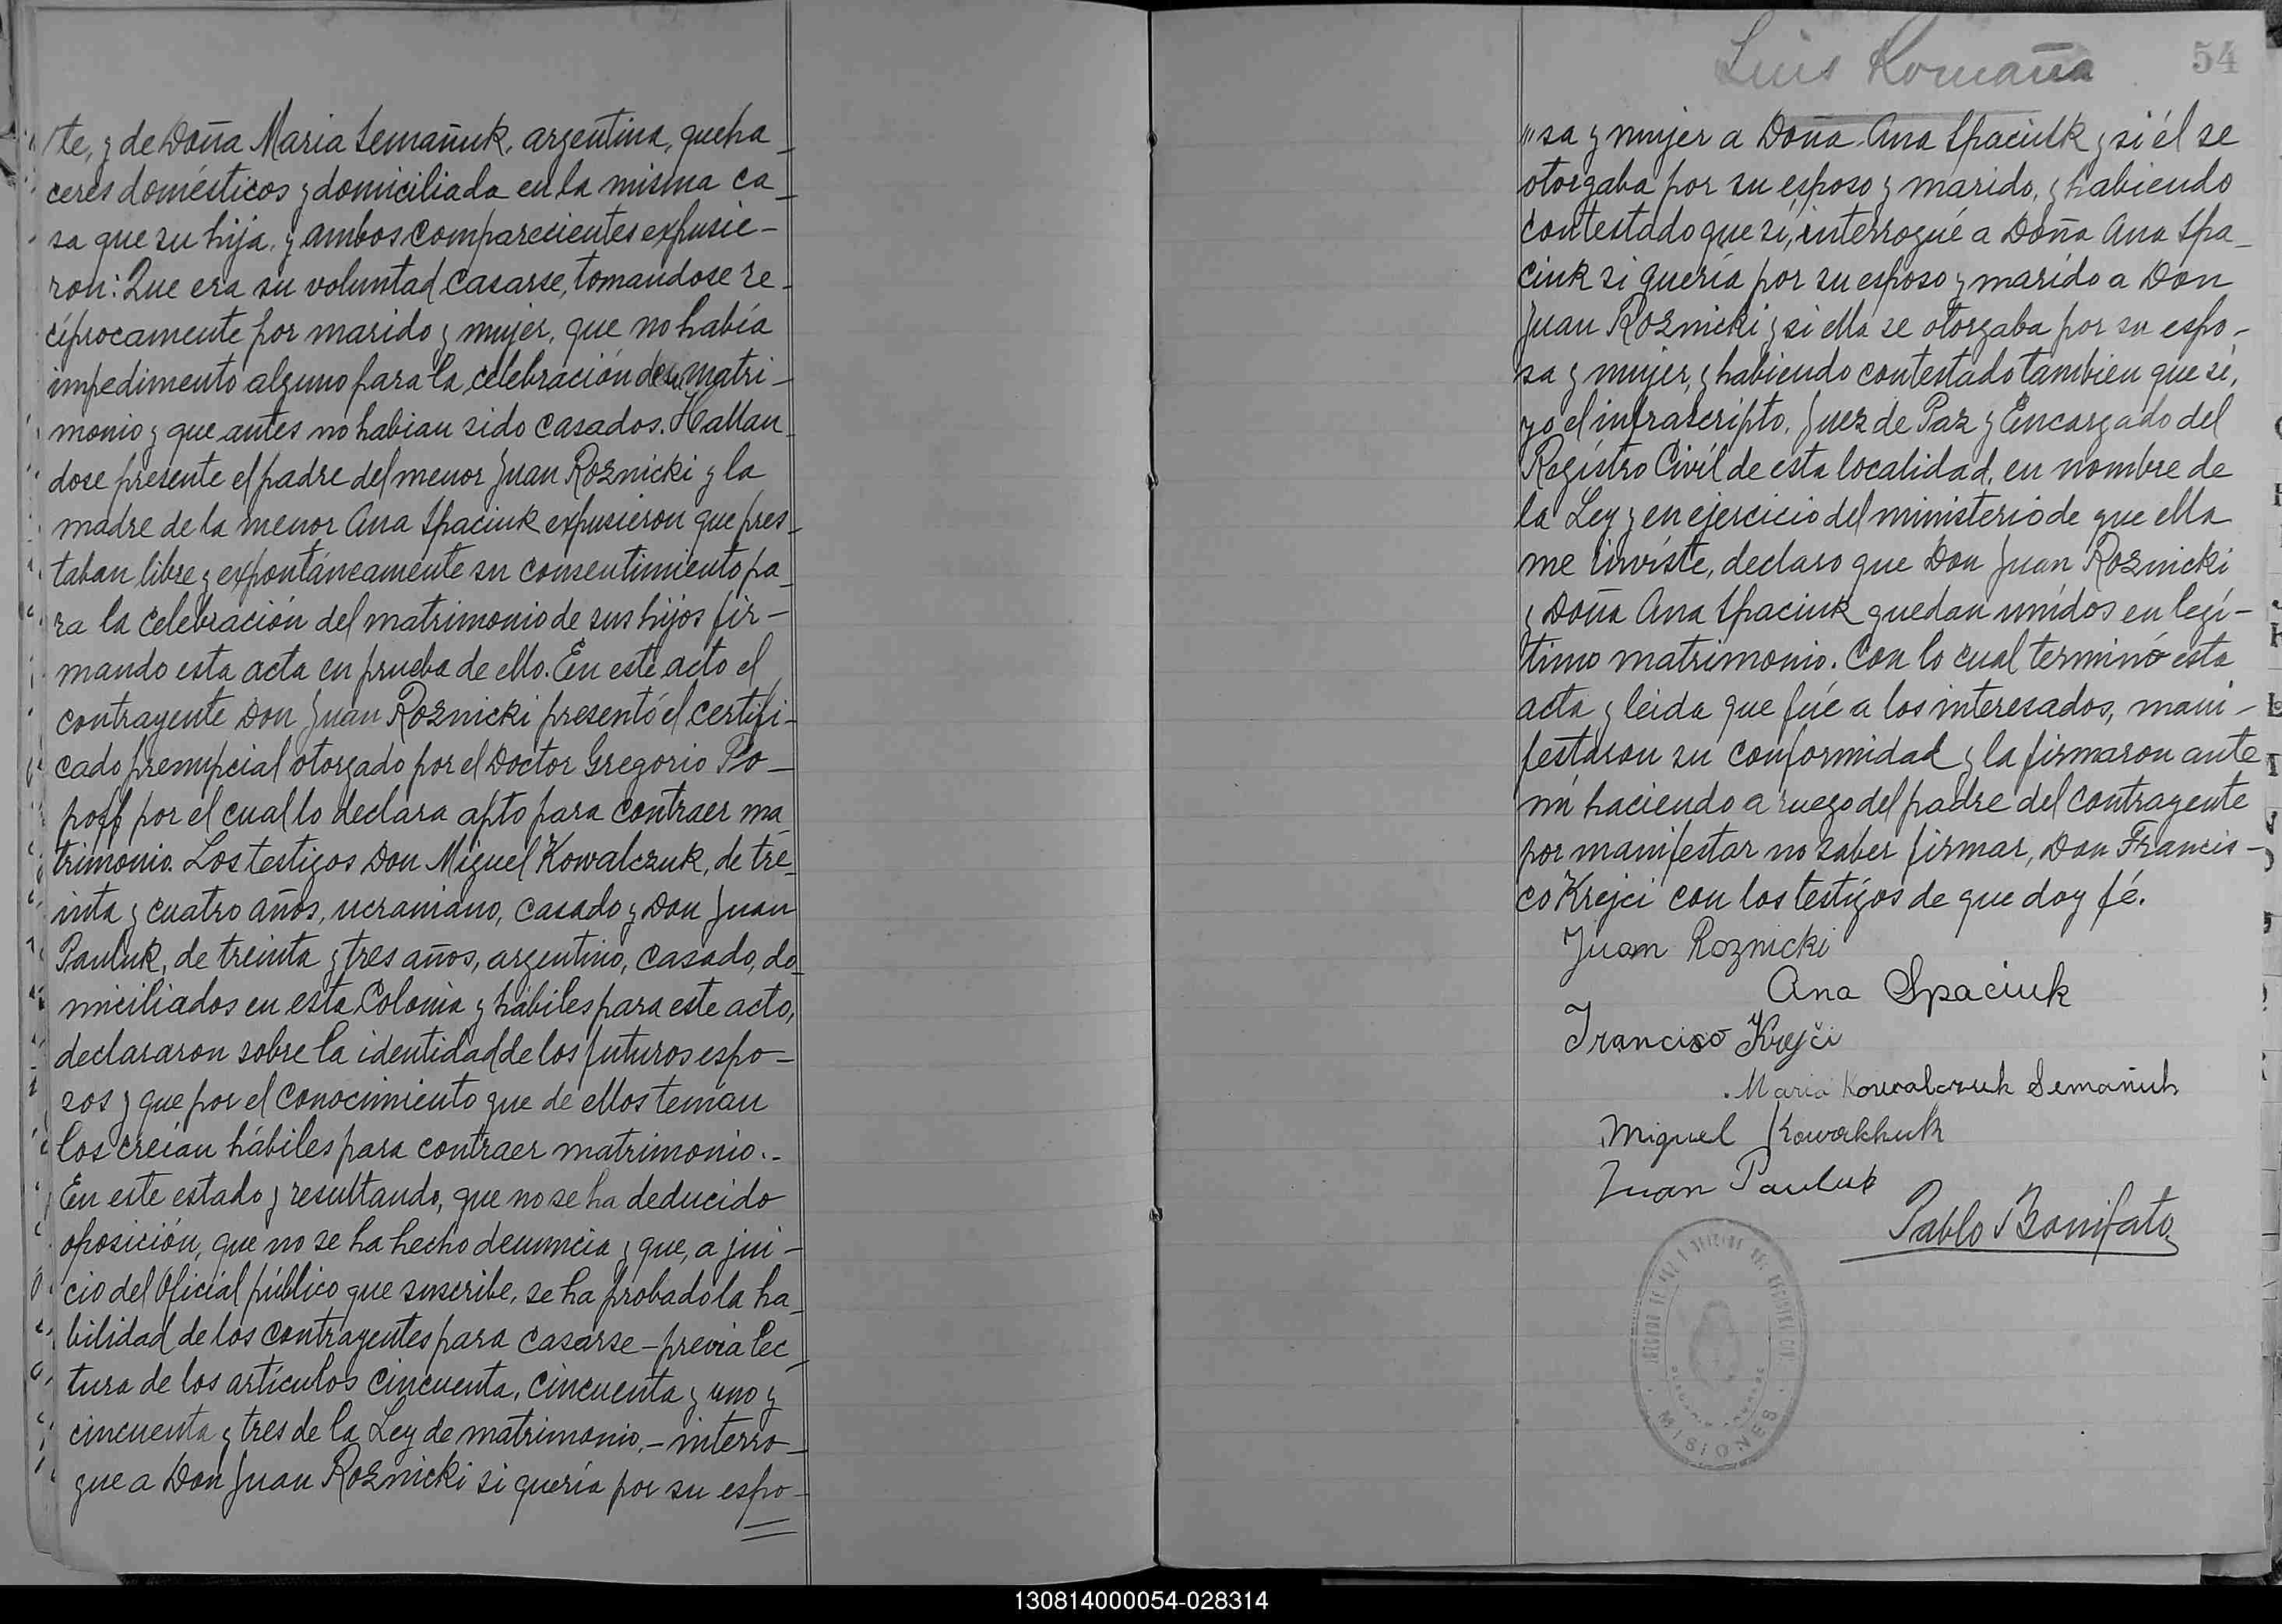 te, y de Doña Maria Semañuk, argentina, queha-
ceres domésticos y domiciliada en la misma ca-
sa que su hija, y ambos comparecientes expusie-
ron: Que era su voluntad casarse, tomandose re-
cíprocamente por marido y mujer, que no había
impedimento alguno para la celebración de su matri-
monio y que antes no habian sido casados. Hallan-
dose presente el padre del menor Juan Roznicki y la
madre de la menor Ana Spaciuk expusieron que pres-
taban libre y expontáneamente su consentimiento pa-
ra la celebración del matrimonio de sus hijos fir-
mando esta acta en prueba de ello. En este acto el
contrayente Don Juan Roznicki presentó el certifi-
cado prenupcial otorgado por el Doctor Gregorio Po-
poff por el cual lo declara apto para contraer ma-
trimonio. Los testigos Don Miguel Kowalczuk, de tre-
inta y cuatro años, ucraniano, casado y Don Juan
Pauluk, de treinta y tres años, argentino, casado, do-
miciliados en esta Colonia y hábiles para este acto,
declararon sobre la identidad de los futuros espo-
sos y que por el conocimiento que de ellos tenían
los creían hábiles para contraer matrimonio.-
En este estado y resultando, que no se ha deducido
oposición, que no se ha hecho denuncia y que, a jui-
cio del Oficial público que suscribe, se ha probado la ha-
bilidad de los contrayentes para casarse - previa lec-
tura de los artículos cincuenta, cincuenta y uno y
cincuenta y tres de la Ley de matrimonio, - interro-
gue a Don Juan Roznicki si quería por su espo-
Luis Romaña
54
sa y mujer a Doña Ana Spaciuk y si él se
otorgaba por su esposo y marido, y habiendo
contestado que sí, interrogué a Doña Ana Spa-
ciuk si quería por su esposo y marido a Don
Juan Roznicki y si ella se otorgaba por su espo-
sa y mujer, y habiendo contestado tambien que sí,
yo el infrascripto, Juez de Paz y Encargado del
Registro Civil de esta localidad, en nombre de
la Ley y en ejercicio del ministerio de que ella
me inviste, declaro que Don Juan Roznicki
y Doña Ana Spaciuk quedan unidos en legí-
timo matrimonio. Con lo cual terminó esta
acta y leida que fué a los interesados, mani-
festaron su conformidad y la firmaron ante
mi haciendo a ruego del padre del contrayente
por manifestar no saber firmar, Don Francis-
co Krejci con los testigos de que doy fé.
Juan Roznicki
Ana Spaciuk
Francisco Krejči
Maria Kowalczuk Semañuk
Miguel Kowalchuk
Juan Pauluk
Pablo Bonifato
MISIONES
130814000054-028314